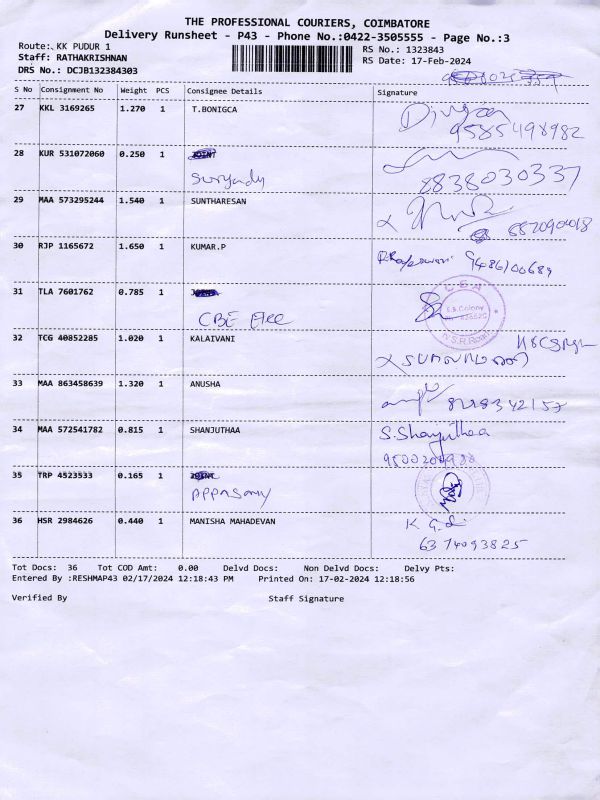 THE PROFESSIONAL COURIERS, COIMBATORE
Delivery Runsheet - P43 - Phone No.:0422-3505555 - Page No.:3
Route: KK PUDUR 1
Staff: RATHAKRISHNAN
DRS No.: DCJB132384303
RS No.: 1323843
RS Date: 17-Feb-2024
S No Consignment No Weight PCS Consignee Details Signature
27 KKL 3169265 1.270 1 T.BONIGCA
9585498982
28 KUR 531072060 0.250 1
8838030337
29 MAA 573295244 1.540 1 SUNTHARESAN
30 RJP 1165672 1.650 1 KUMAR.P
9486100689
31 TLA 7601762 0.785 1
CBE Elec
CEA
32 TCG 40852285 1.020 1 KALAIVANI
33 MAA 863458639 1.320 1 ANUSHA
8218342157
34 MAA 572541782 0.815 1 SHANJUTHAA
S.Shanjuthaa
35 TRP 4523533 0.165 1
APPASAMY
36 HSR 2984626 0.440 1 MANISHA MAHADEVAN
6374093825
Tot Docs: 36 Tot COD Amt: 0.00 Delvd Docs: Non Delvd Docs: Delvy Pts:
Entered By :RESHMAP43 02/17/2024 12:18:43 PM Printed On: 17-02-2024 12:18:56
Verified By Staff Signature